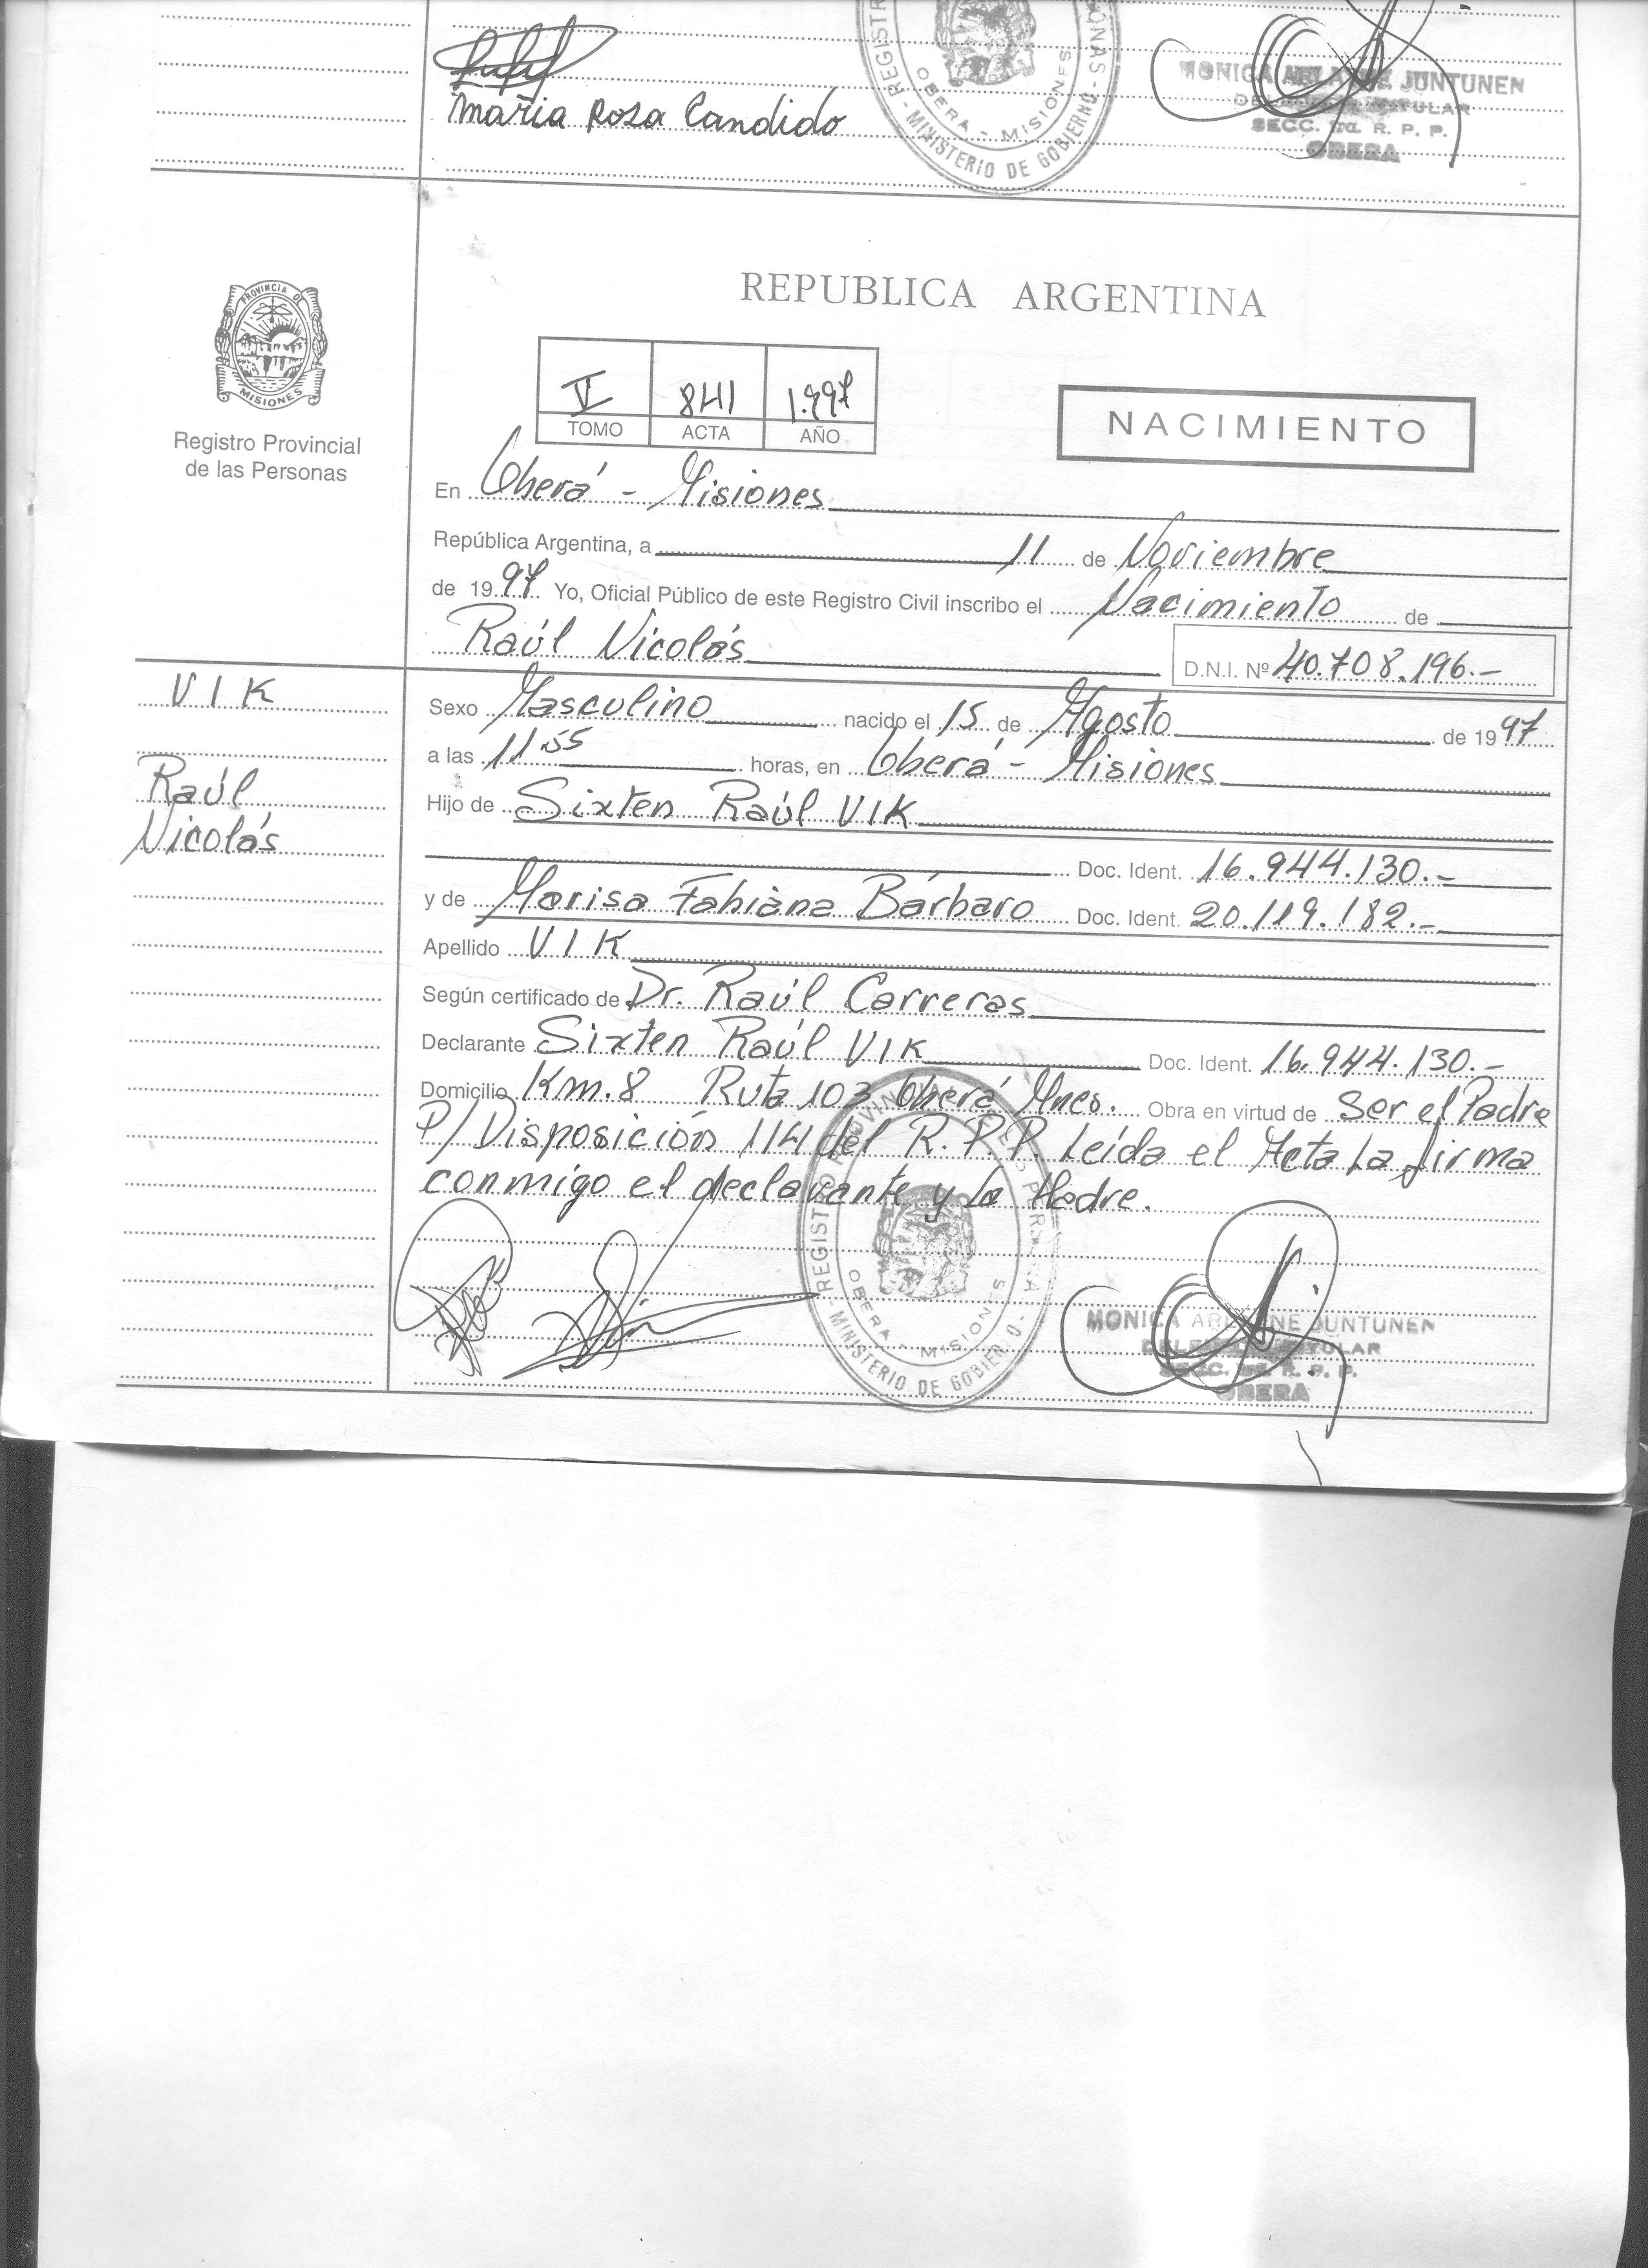 Maria Rosa Candido
REGISTR
ONAS -
OBERA - MISIONES
- MINISTERIO DE GOBIERNO -
MONICA JUNTUNEN
SECC. R. P. P.
OBERA
PROVINCIA DE
MISIONES
Registro Provincial
de las Personas
REPUBLICA ARGENTINA
V 841 1.997
TOMO ACTA AÑO
NACIMIENTO
En Oberá - Misiones
República Argentina, a 11 de Noviembre
de 1997 Yo, Oficial Público de este Registro Civil inscribo el Nacimiento de
Raúl Nicolás D.N.I. Nº 40.708.196.-
VIK
Raúl
Nicolás
Sexo Masculino nacido el 15 de Agosto de 1997
a las 11.55 horas, en Oberá - Misiones
Hijo de Sixten Raúl VIK
Doc. Ident. 16.944.130.-
y de Marisa Fabiana Bárbaro Doc. Ident. 20.119.182.-
Apellido VIK
Según certificado de Dr. Raúl Carreras
Declarante Sixten Raúl VIK Doc. Ident. 16.944.130.-
Domicilio Km. 8 Ruta 103 Oberá Mnes. Obra en virtud de Ser el Padre
P/Disposición 114 del R.P.P. Leída el Acta La firma
conmigo el declarante y la Madre.
OBERA - MISIONES
- MINISTERIO DE GOBIERNO -
MONICA JUNTUNEN
R. P. P.
OBERA